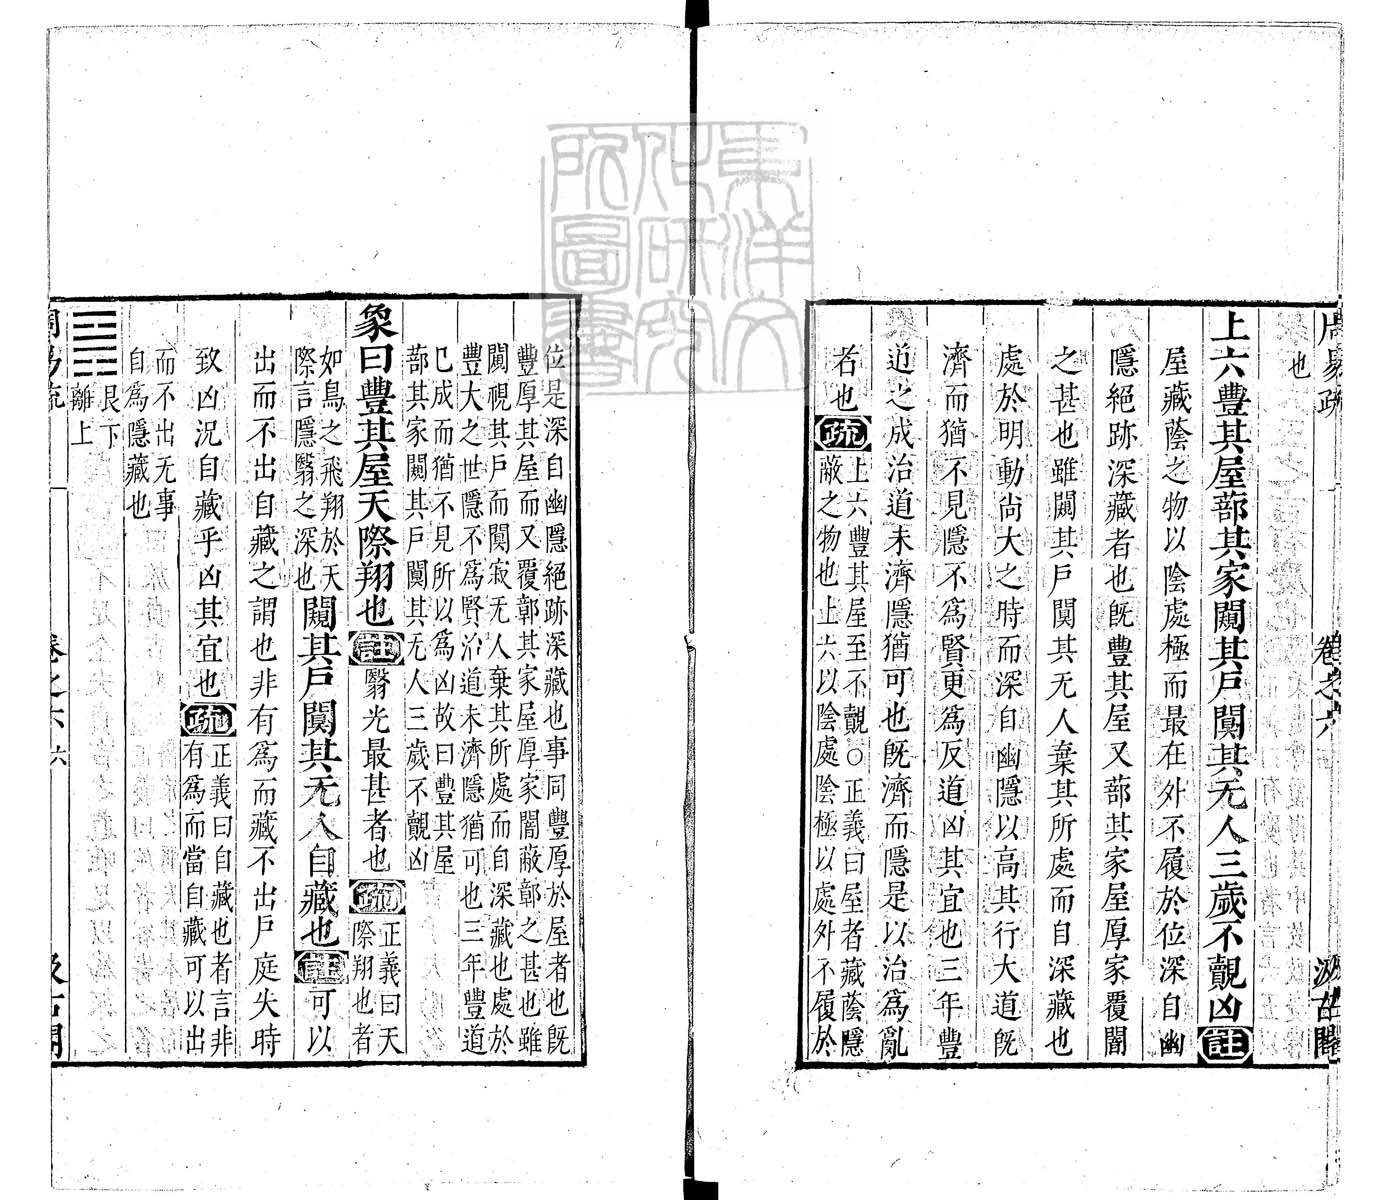 周易疏 卷之六 汲古閣
也
上六豐其屋蔀其家闚其戶闃其无人三歲不覿凶註
屋藏蔭之物以陰處極而最在外不履於位深自幽
隱絕跡深藏者也既豐其屋又蔀其家屋厚家覆闇
之甚也雖闚其戶闃其无人棄其所處而自深藏也
處於明動尚大之時而深自幽隱以高其行大道既
濟而猶不見隱不為賢更為反道凶其宜也三年豐
道之成治道未濟隱猶可也既濟而隱是以治為亂
者也疏
上六豐其屋至不覿○正義曰屋者藏蔭隱
蔽之物也上六以陰處陰極以處外不履於
位是深自幽隱絕跡深藏也事同豐厚於屋者也既
豐厚其屋而又覆鄣其家屋厚家闇蔽鄣之甚也雖
闚視其戶而闃寂无人棄其所處而自深藏也處於
豐大之世隱不為賢治道未濟隱猶可也三年豐道
已成而猶不見所以為凶故曰豐其屋
蔀其家闚其戶闃其无人三歲不覿凶
象曰豐其屋天際翔也註翳光最甚者也疏
正義曰天
際翔也者
如鳥之飛翔於天
際言隱翳之深也
闚其戶闃其无人自藏也註可以
出而不出自藏之謂也非有為而藏不出戶庭失時
致凶況自藏乎凶其宜也疏
正義曰自藏也者言非
有為而當自藏可以出
而不出无事
自為隱藏也
艮下
離上
周易疏 卷之六 六 汲古閣
東洋文化研究所圖書